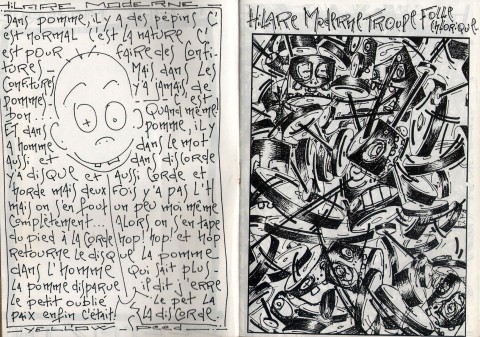 HiLARE MODERNE
DANS POMME, iL Y A DES PÉPiNS C'
EST NORMAL C'EST LA NATURE C'
EST POUR FAiRE DES CONFi-
TURES - MAiS DANS LES
CONFiTURES Y'A JAMAiS DE
POMME EST
BON... QUAND MÊME!
ET DANS POMME, iL Y
A HOMME DANS LE MOT
AUSSi ET DANS DiSCORDE
Y'A DiSQUE ET AUSSi CORDE ET
HORDE MAiS DEUX FOiS Y'A PAS L'H
MAiS ON S'EN FOUT UN PEU MOi MÊME
COMPLÈTEMENT... ALORS ON S'EN TAPE
DU PiED À LA CORDE HOP! HOP! ET HOP
RETOURNE LE DiSQUE LA POMME
DANS L'HOMME QUi SAiT PLUS-
LA POMME DiSPARUE iL DiT J'ERRE
LE PETiT OUBLiÉ LE PET LA
PAiX ENFiN C'ÉTAiT LA DiSCORDE.
YELLOW - PEED
HiLARE MODERNE TROUPE FOLLE
CHLORiQUE